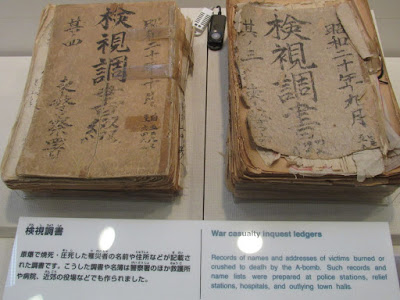 検視調書綴
昭和二十年十月
其ノ四
検視調書綴
昭和二十年九月
其ノ三
検視調書
原爆で焼死・圧死した罹災者の名前や住所などが記載さ
れた調書です。こうした調書や名簿は警察署のほか救護所
や病院、近郊の役場などでも作られました。
War casualty inquest ledgers
Records of names and addresses of victims burned or
crushed to death by the A-bomb. Such records and
name lists were prepared at police stations, relief
stations, hospitals, and outlying town halls.